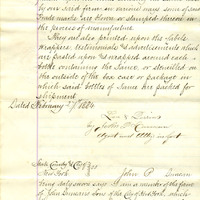 by our said firm on various
Trade marks are blown or stamped therein in
the process of manufacture.
They are also printed upon the labels
wrappers, testimonials & advertisements which
are pasted upon & wrapped around each
bottle containing the same, or stencilled on
the outside of the box case or package in
which said bottles of same are packed for
shipment.
Dated February 27 1884
Lea & Perrins
by John
Agent and Atty in fact
State County &
New York
John P. Duncan
being duly sworn says I am a member of the firm
of John Duncan's Sons of the City of New York,